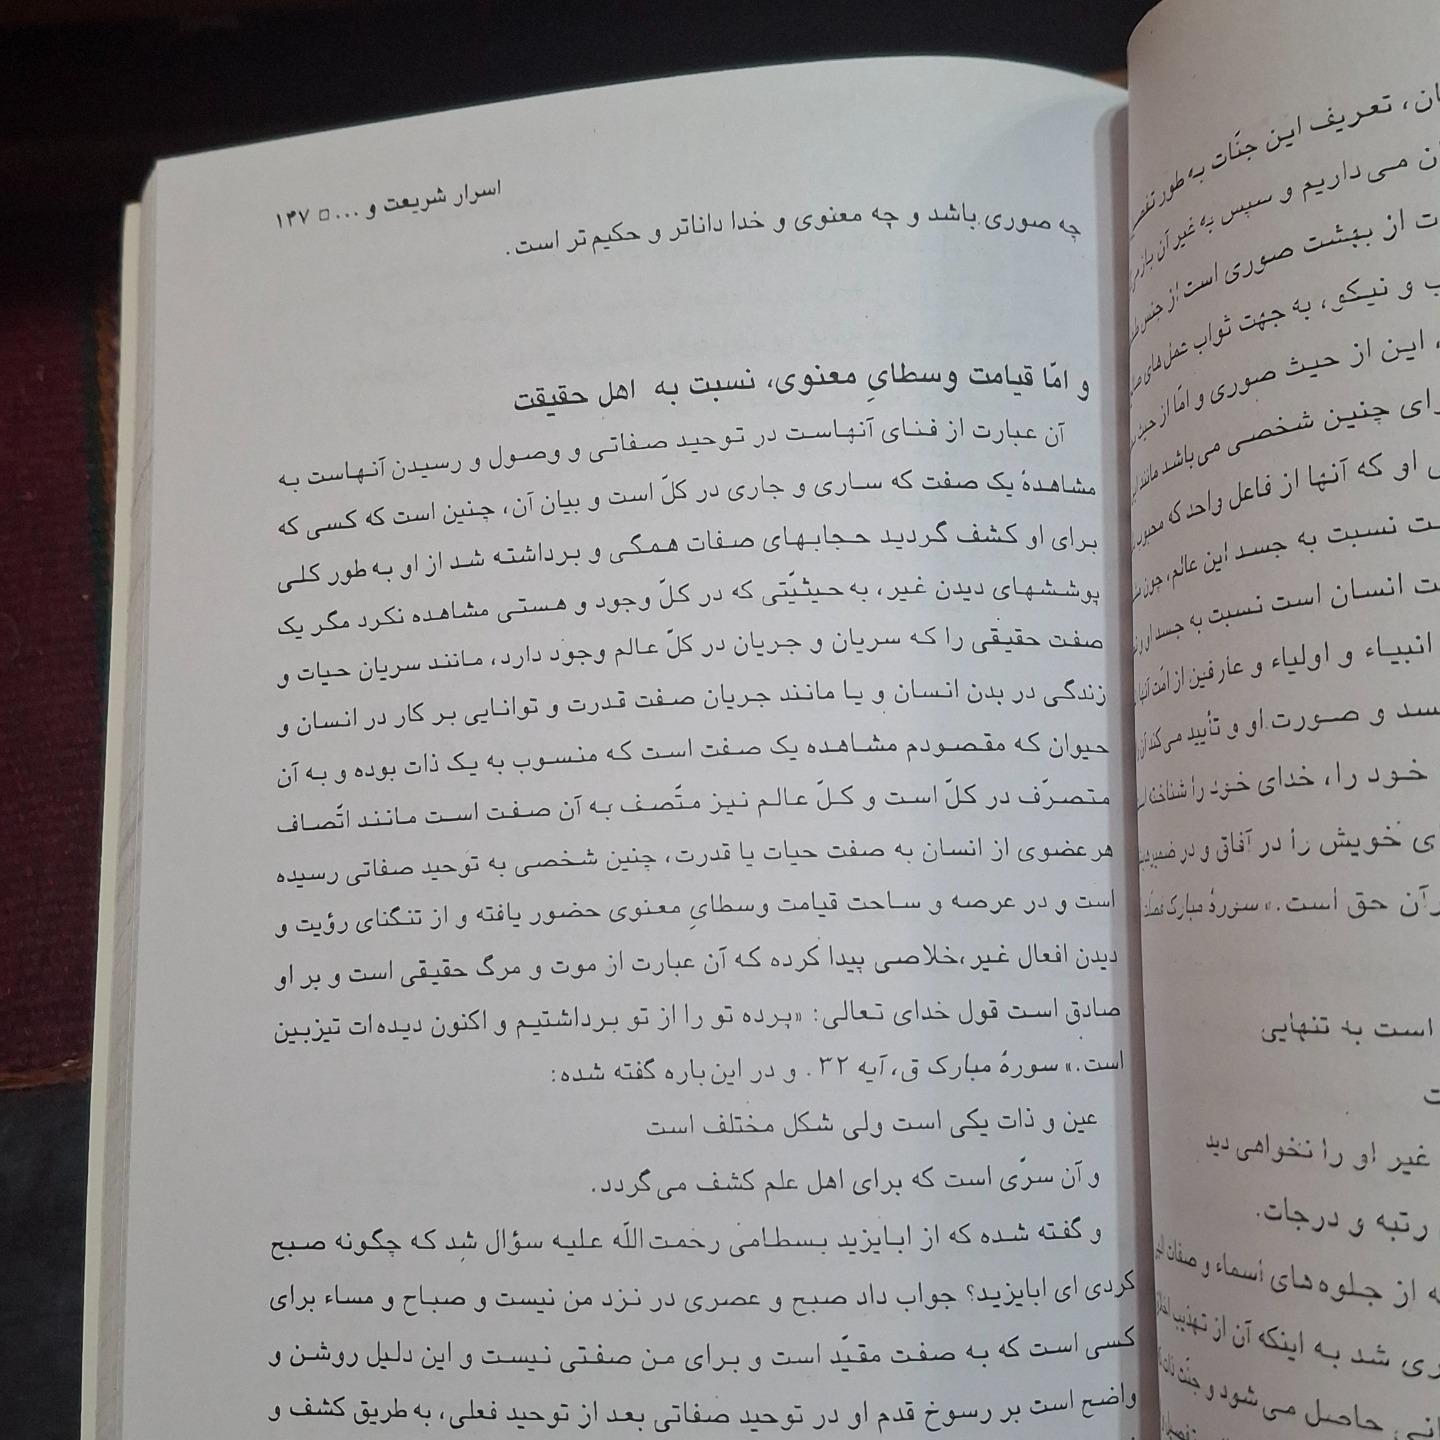 اسرار شریعت و ... □ ۱۴۷
چه صوری باشد و چه معنوی و خدا داناتر و حکیم‌تر است.
و امّا قیامت وسطایِ معنوی، نسبت به اهل حقیقت
آن عبارت از فنای آنهاست در توحید صفاتی و وصول و رسیدن آنهاست به
مشاهدهٔ یک صفت که ساری و جاری در کلّ است و بیان آن، چنین است که کسی که
برای او کشف گردید حجابهای صفات همگی و برداشته شد از او به‌طور کلی
پوششهای دیدن غیر، به حیثیّتی که در کلّ وجود و هستی مشاهده نکرد مگر یک
صفت حقیقی را که سریان و جریان در کلّ عالم وجود دارد، مانند سریان حیات و
زندگی در بدن انسان و یا مانند جریان صفت قدرت و توانایی بر کار در انسان و
حیوان که مقصودم مشاهده یک صفت است که منسوب به یک ذات بوده و به آن
متصرّف در کلّ است و کلّ عالم نیز متّصف به آن صفت است مانند اتّصاف
هر عضوی از انسان به صفت حیات یا قدرت، چنین شخصی به توحید صفاتی رسیده
است و در عرصه و ساحت قیامت وسطایِ معنوی حضور یافته و از تنگنای رؤیت و
دیدن افعال غیر،خلاصی پیدا کرده که آن عبارت از موت و مرگ حقیقی است و بر او
صادق است قول خدای تعالی: «پرده تو را از تو برداشتیم و اکنون دیده‌ات تیزبین
است.» سورهٔ مبارک ق، آیه ۳۲. و در این‌باره گفته شده:
عین و ذات یکی است ولی شکل مختلف است
و آن سرّی است که برای اهل علم کشف می‌گردد.
و گفته شده که از ابایزید بسطامی رحمت‌اللّه علیه سؤال شد که چگونه صبح
کردی ای ابایزید؟ جواب داد صبح و عصری در نزد من نیست و صباح و مساء برای
کسی است که به صفت مقیّد است و برای من صفتی نیست و این دلیل روشن و
واضح است بر رسوخ قدم او در توحید صفاتی بعد از توحید فعلی، به‌طریق کشف و
ان، تعریف این جنّات به طور
ن می‌داریم و سپس به غیر آن باز
ت از بهشت صوری است از جنس
ب و نیکو، به جهت ثواب عمل‌های
، این از حیث صوری و امّا از حیث
رای چنین شخصی می‌باشد مانند
ی او که آنها از فاعل واحد که محبوب
ت نسبت به جسد این عالم، چون
ت انسان است نسبت به جسد او و
انبیاء و اولیاء و عارفین از امّت آنها
سد و صورت او و تأیید می‌کند آن
خود را، خدای خود را شناخته
ی خویش را در آفاق و در
رآن حق است.» سورهٔ مبارک
است به تنهایی
ت
غیر او را نخواهی دید
رتبه و درجات.
ه از جلوه‌های أسماء و صفات
ری شد به اینکه آن از تهذیب
انی حاصل می‌شود و جنّت